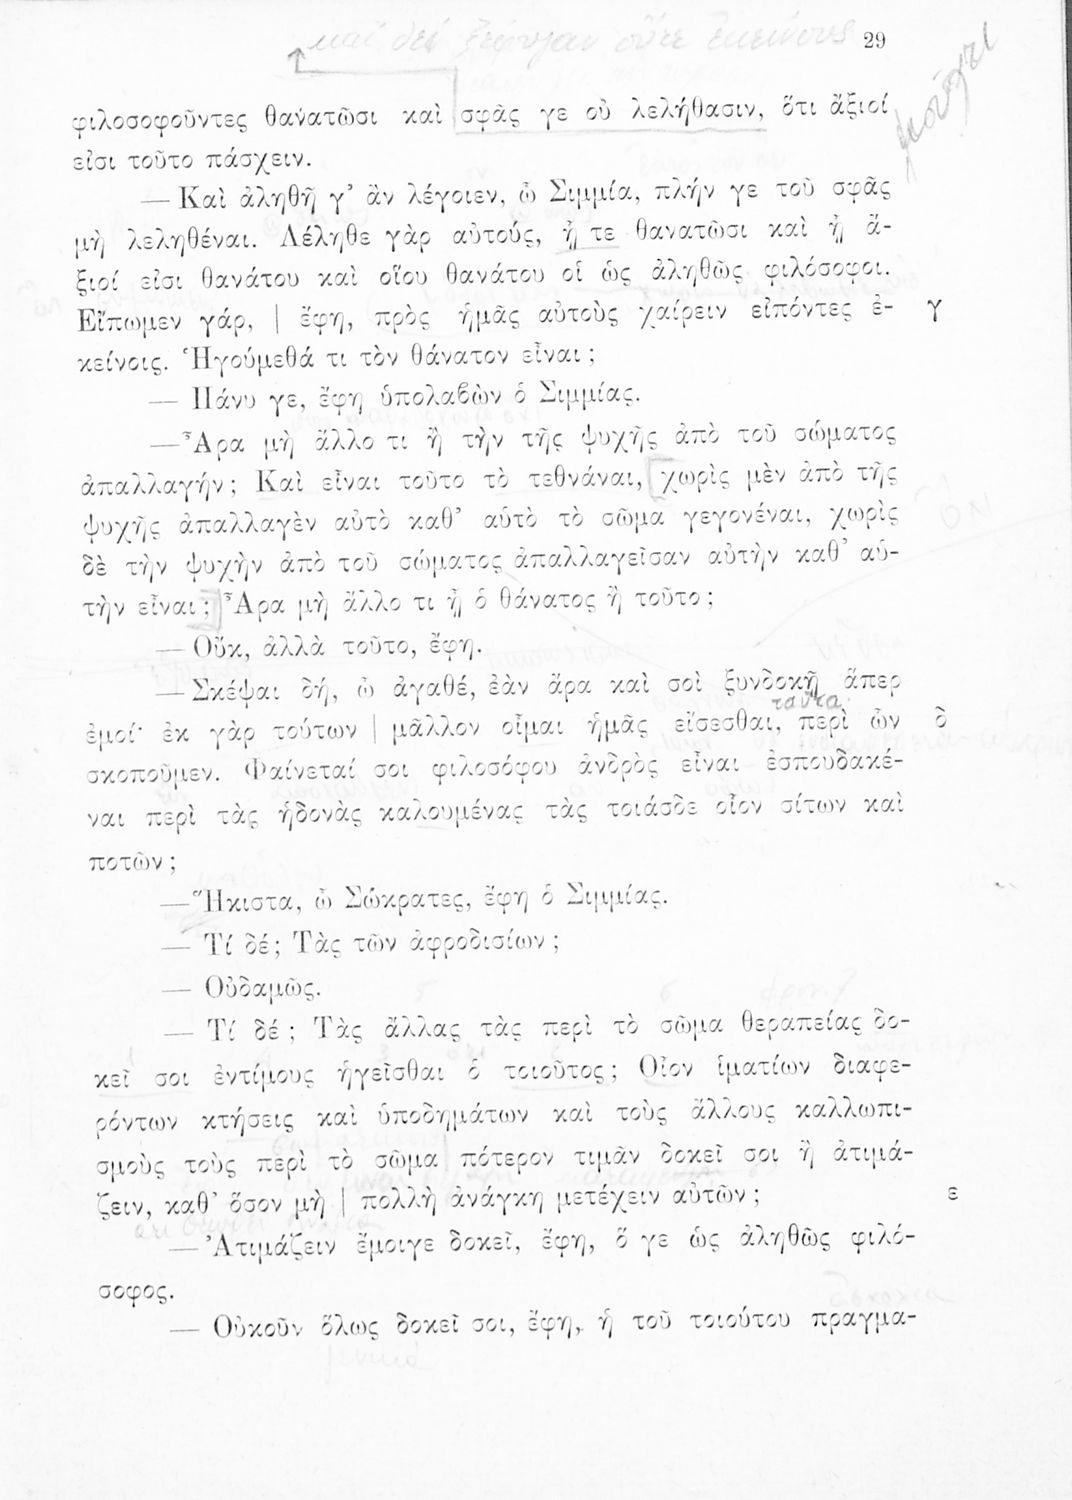 29
φιλοσοφοῦντες θανατῶσι καὶ σφᾶς γε οὐ λελήθασιν, ὅτι ἄξιοί
εἰσι τοῦτο πάσχειν.
— Καὶ ἀληθῆ γ' ἂν λέγοιεν, ὦ Σιμμία, πλήν γε τοῦ σφᾶς
μὴ λεληθέναι. Λέληθε γὰρ αὐτούς, ᾗ τε θανατῶσι καὶ ᾗ ἄ-
ξιοί εἰσι θανάτου καὶ οἵου θανάτου οἱ ὡς ἀληθῶς φιλόσοφοι.
Εἴπωμεν γάρ, | ἔφη, πρὸς ἡμᾶς αὐτοὺς χαίρειν εἰπόντες ἐ- γ
κείνοις. Ἡγούμεθά τι τὸν θάνατον εἶναι;
— Πάνυ γε, ἔφη ὑπολαβὼν ὁ Σιμμίας.
— Ἆρα μὴ ἄλλο τι ἢ τὴν τῆς ψυχῆς ἀπὸ τοῦ σώματος
ἀπαλλαγήν; Καὶ εἶναι τοῦτο τὸ τεθνάναι, χωρὶς μὲν ἀπὸ τῆς
ψυχῆς ἀπαλλαγὲν αὐτὸ καθ' αὑτὸ τὸ σῶμα γεγονέναι, χωρὶς
δὲ τὴν ψυχὴν ἀπὸ τοῦ σώματος ἀπαλλαγεῖσαν αὐτὴν καθ' αὑ-
τὴν εἶναι; Ἆρα μὴ ἄλλο τι ᾖ ὁ θάνατος ἢ τοῦτο;
— Οὔκ, ἀλλὰ τοῦτο, ἔφη.
— Σκέψαι δή, ὦ ἀγαθέ, ἐὰν ἄρα καὶ σοὶ ξυνδοκῇ ἅπερ
ταῦτα
ἐμοί· ἐκ γὰρ τούτων | μᾶλλον οἶμαι ἡμᾶς εἴσεσθαι, περὶ ὧν δ
σκοποῦμεν. Φαίνεταί σοι φιλοσόφου ἀνδρὸς εἶναι ἐσπουδακέ-
ναι περὶ τὰς ἡδονὰς καλουμένας τὰς τοιάσδε οἷον σίτων καὶ
ποτῶν;
— Ἥκιστα, ὦ Σώκρατες, ἔφη ὁ Σιμμίας.
— Τί δέ; Τὰς τῶν ἀφροδισίων;
— Οὐδαμῶς.
— Τί δέ; Τὰς ἄλλας τὰς περὶ τὸ σῶμα θεραπείας δο-
κεῖ σοι ἐντίμους ἡγεῖσθαι ὁ τοιοῦτος; Οἷον ἱματίων διαφε-
ρόντων κτήσεις καὶ ὑποδημάτων καὶ τοὺς ἄλλους καλλωπι-
σμοὺς τοὺς περὶ τὸ σῶμα πότερον τιμᾶν δοκεῖ σοι ἢ ἀτιμά-
ζειν, καθ' ὅσον μὴ | πολλὴ ἀνάγκη μετέχειν αὐτῶν; ε
— Ἀτιμάζειν ἔμοιγε δοκεῖ, ἔφη, ὅ γε ὡς ἀληθῶς φιλό-
σοφος.
— Οὐκοῦν ὅλως δοκεῖ σοι, ἔφη, ἡ τοῦ τοιούτου πραγμα-